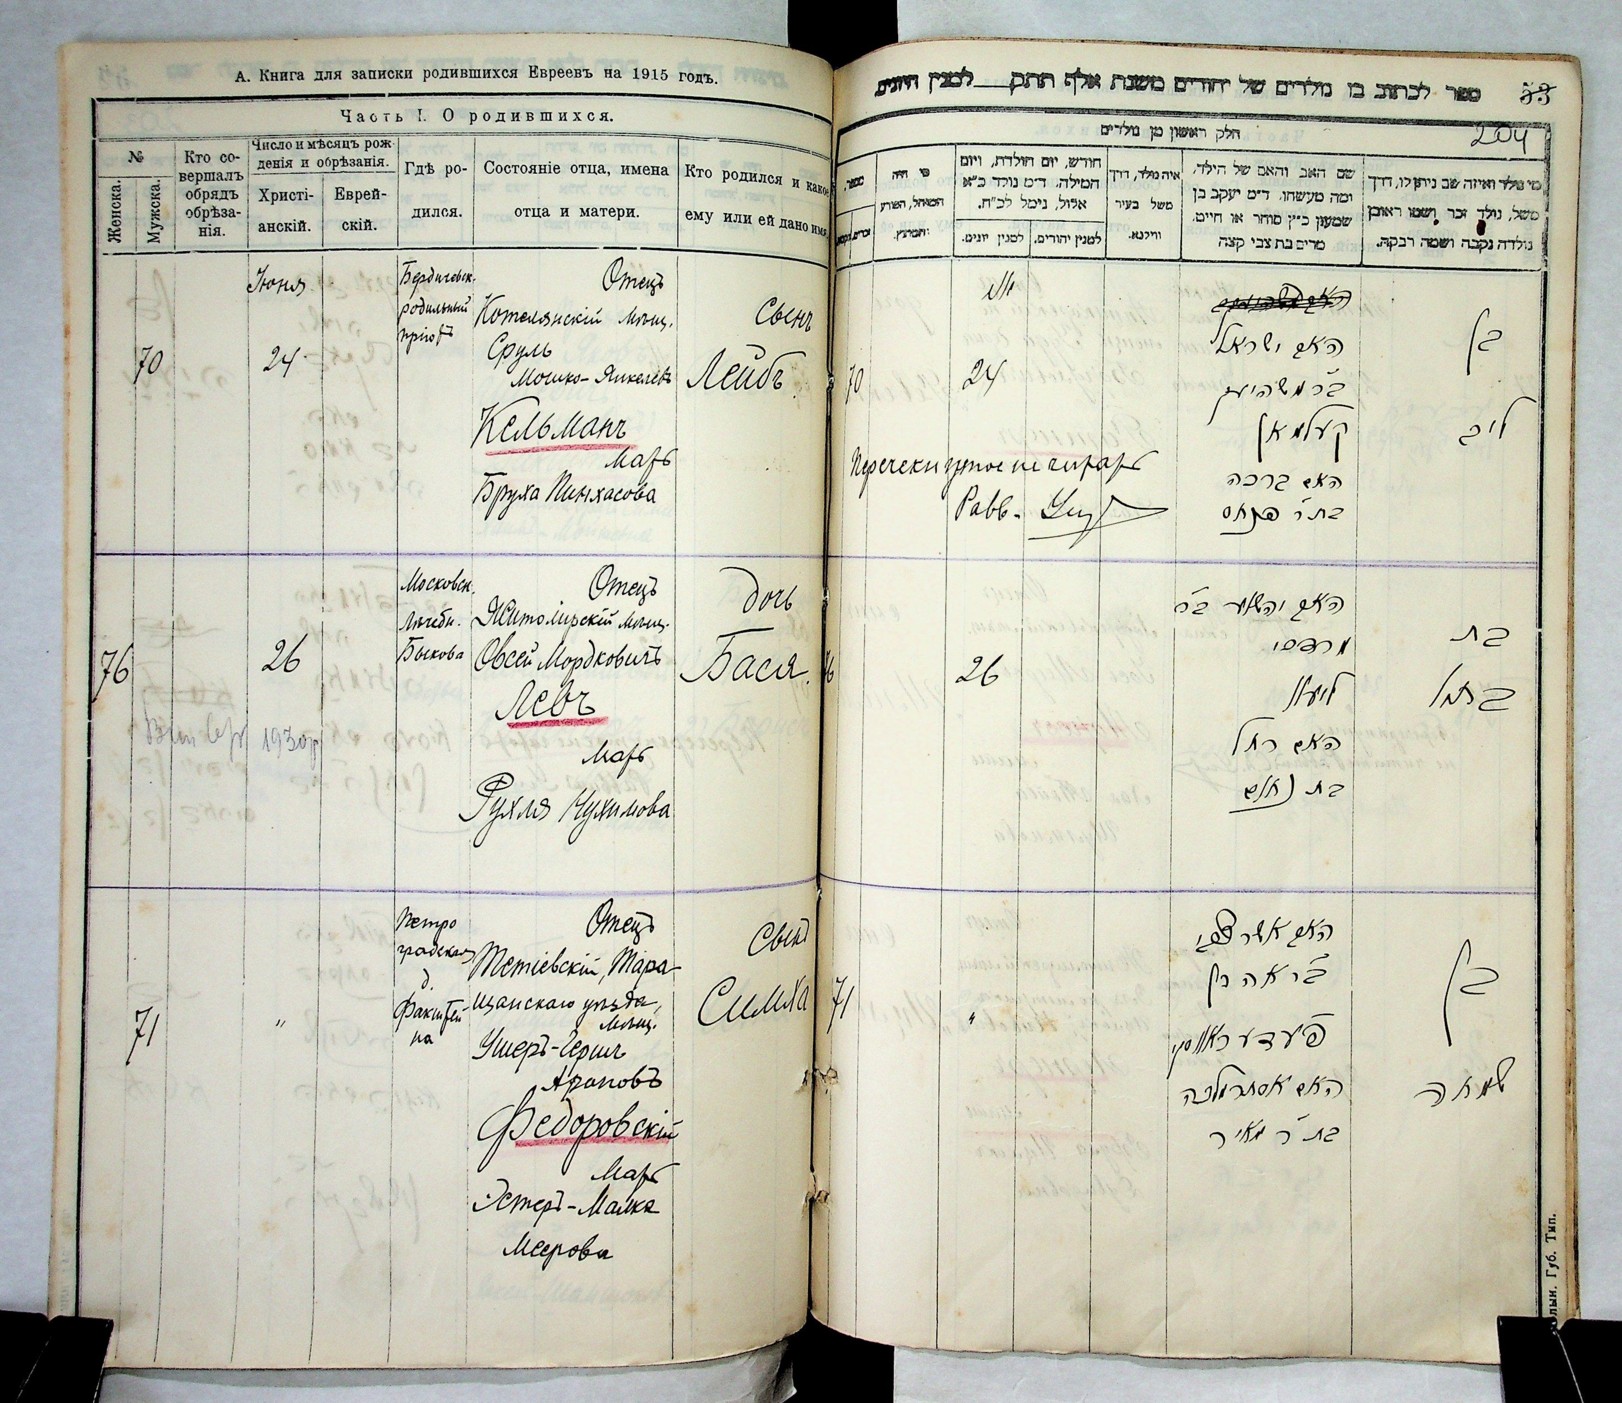 А. Книга для записки родившихся Евреевъ на 1915 годъ.
Часть I. О родившихся.
№
Женска.
Мужска.
Кто со-
вершалъ
обрядъ
обрѣза-
нія.
Число и мѣсяцъ рож
денія и обрѣзанія.
Христі-
анскій.
Еврей-
скій.
Гдѣ ро-
дился.
Состояніе отца, имена
отца и матери.
Кто родился и какое
ему или ей дано имя
70
Іюня
24
Бердичевск.
родильный
пріютъ
Отецъ
Котелянскій мѣщ.
Сруль
Мошко-Янкелевъ
Кельманъ
Мать
Бруха Пинхасова
Сынъ
Лейбъ
76
26
1930г
Московск.
лечебн.
Быкова
Отецъ
Житомірскій мѣщ.
Овсей Мордковичъ
Левъ
Мать
Рухля Нухимова
дочь
Бася.
71
"
Петро
градская
д.
на
Отецъ
Тетіевскій, Тара-
щанскаго уѣзда,
мѣщ.
Ушеръ-Герш
Ароновъ
Федоровскій
Мать
Эстеръ-Малка
Меерова
Сынъ
Симха
ספר לכתוב בו נולדים של יהודים משנת אלף תתק__למנין היונים
53
204
חלק ראשון מן נולדים
מספר
זכרים
מי היה
המוהל, הפורע
והמוצץ.
חודש, יום הולדת, ויום
המילה. ד״מ נולד כ״א
אלול, נימל לכ״ח.
למנין יונים.
למנין יהודים.
איה נולד, דרך
משל בעיר
ווילנא.
שם האב והאם של הילד,
ומה מעשהו. ד״מ יעקב בן
שמעון כ״ץ סוחר או חייט.
מרים בת צבי קצה
מי נולד ואיזה שם ניתן לו, דרך
משל, נולד זכר ושמו ראובן
נולדה נקבה ושמה רבקה.
70
24
האב ישראל
קעלמאן
האם ברכה
בת ר׳ פנחס
בן
ליב
Перечеркнутое не читать
Равв.
76
26
האב יהושע ב״ר
מרדכי
האם רחל
בת נחום
בת
71
"
האב אשר צבי
ב״ר אהרן
פיעדעראווסקי
האם אסתר מלכה
בת ר׳ מאיר
בן
שמחה
Губ. Тип.